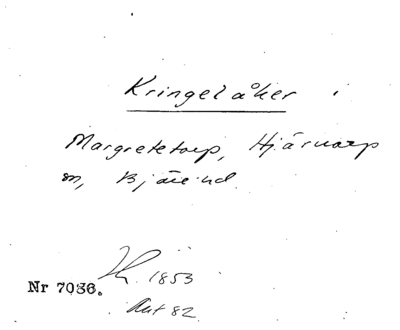 Kringelåker
Margretetorp, Hjärnarp
sn, Bjäre hd.
1853
Nr 7036.
Akt 82